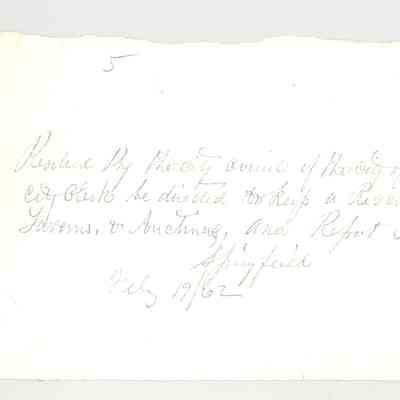 5
Resolved By the city council of the city of
city Clerk be directed to keep a
Taverns, & Auctions, and Report
Springfield
July 19/62